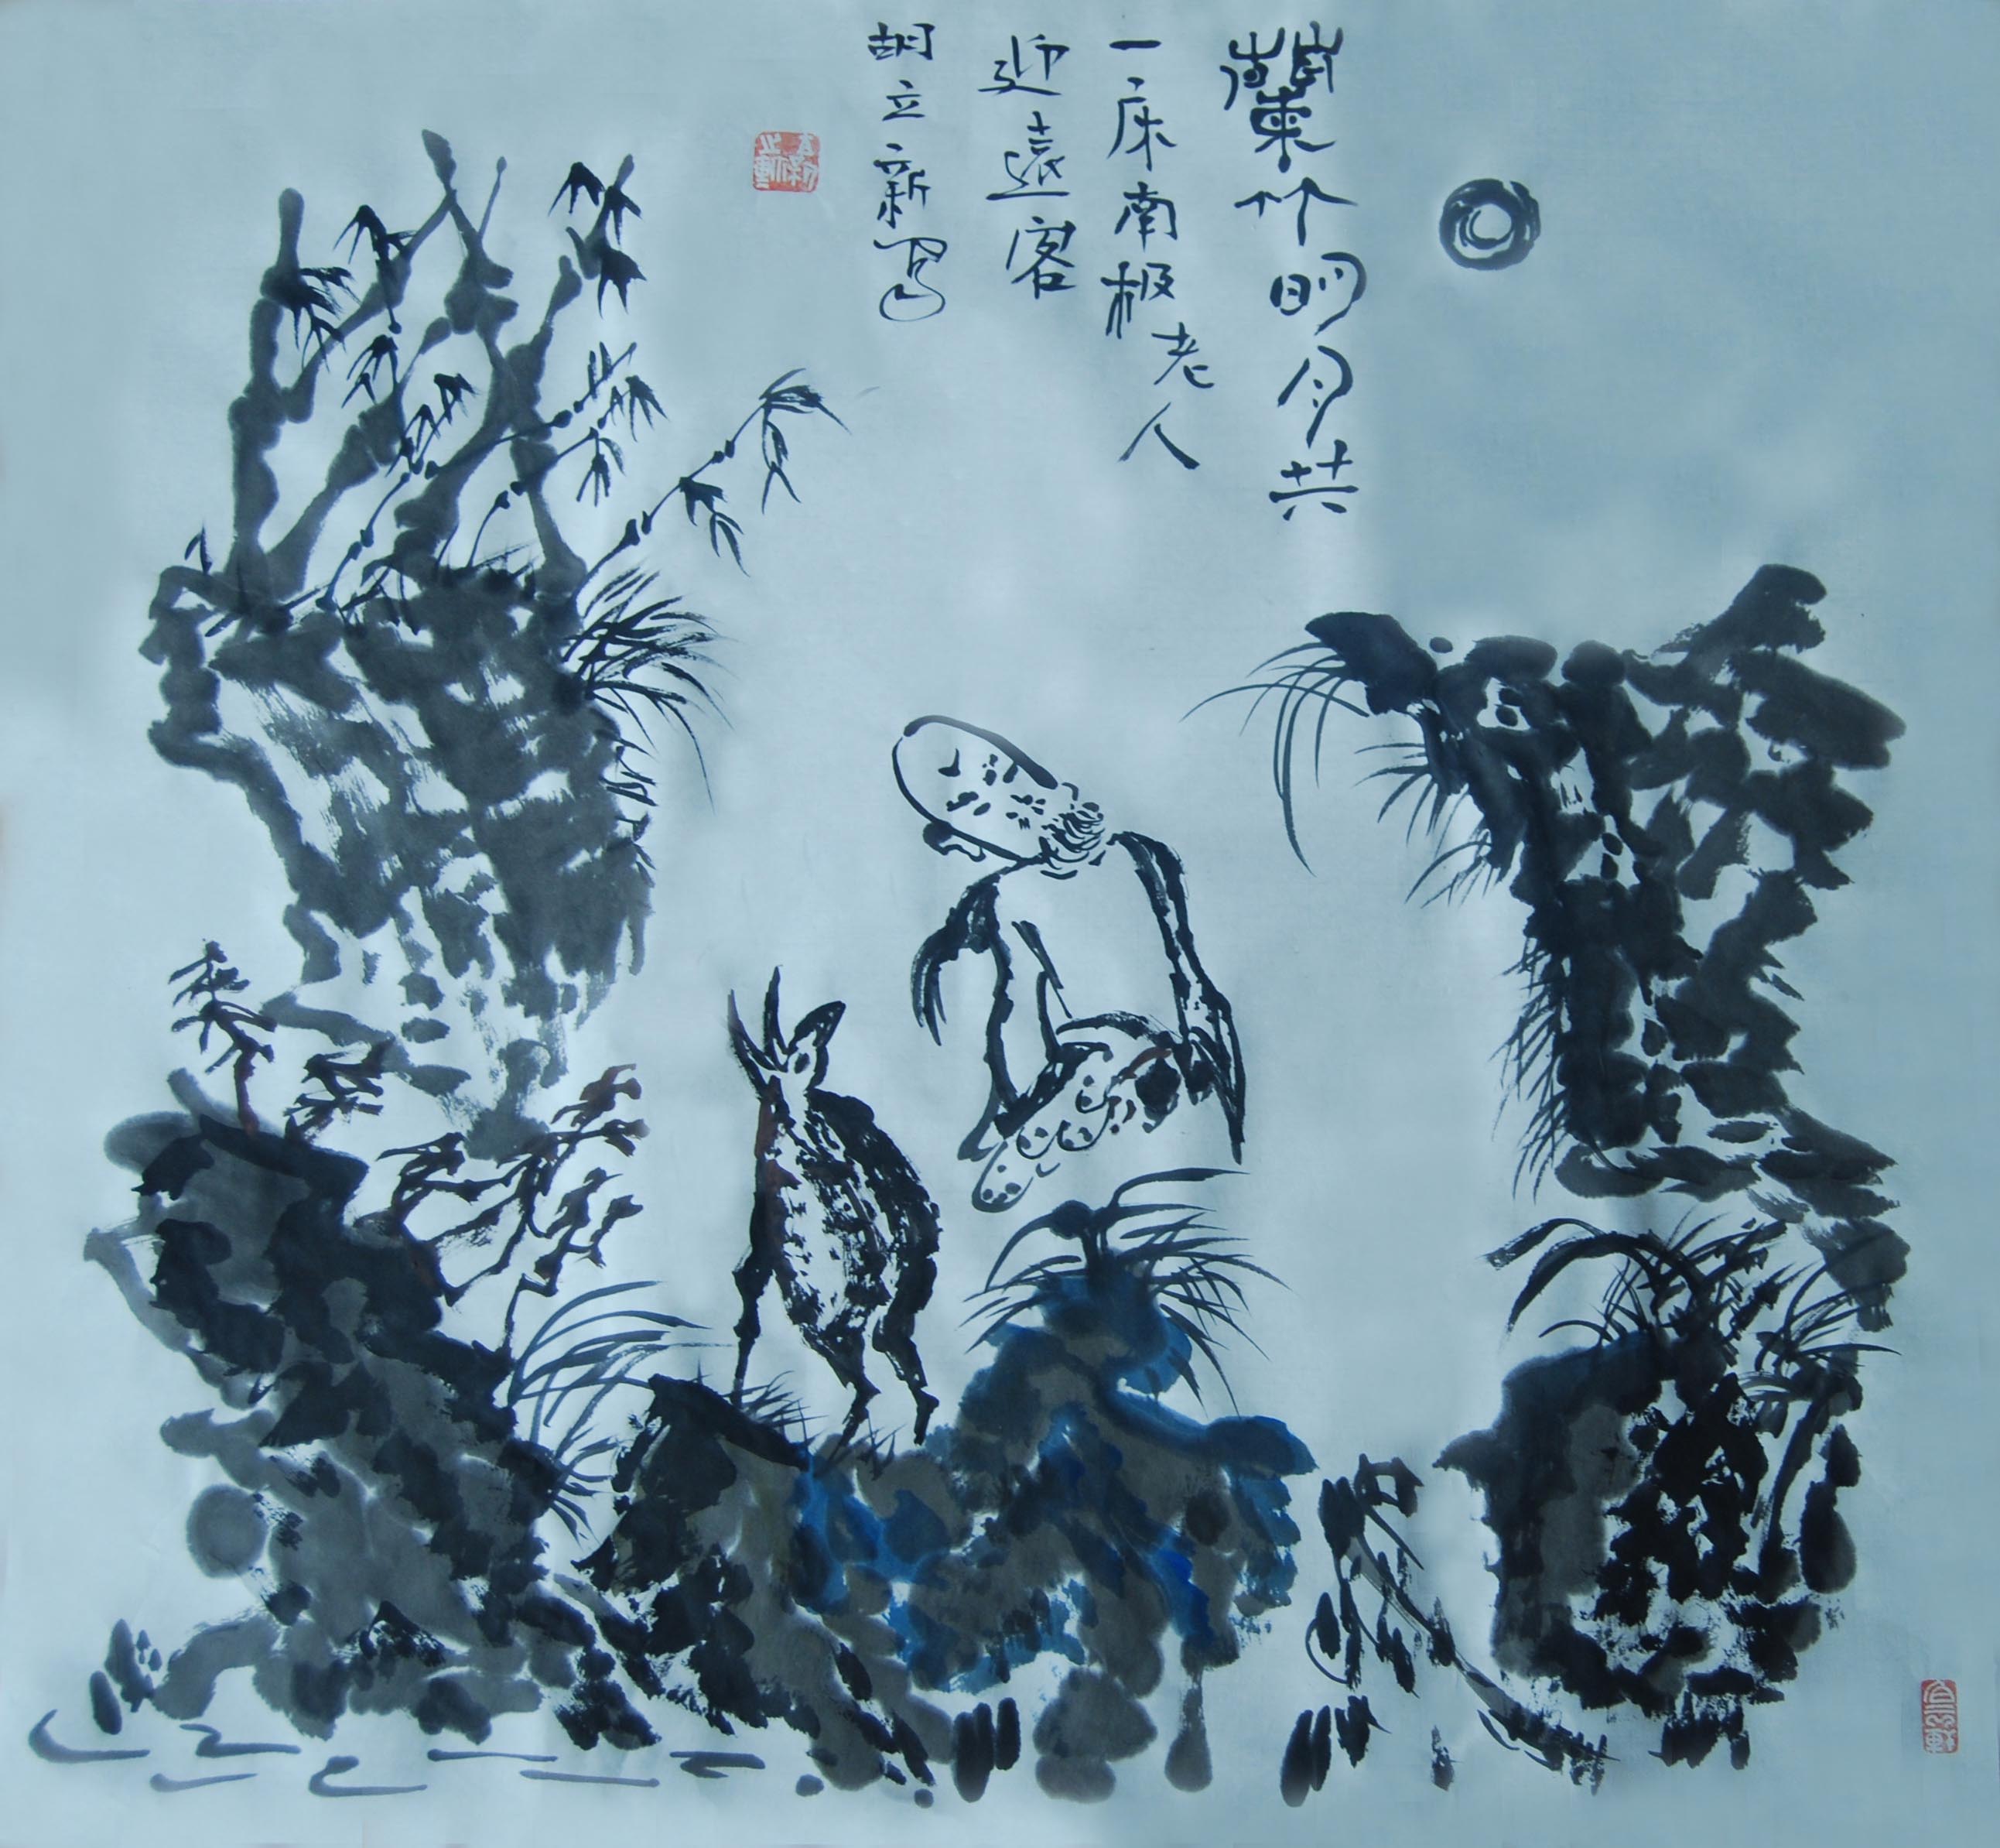 蘭竹明月共
一床南极老人
迎遠客
胡立新写